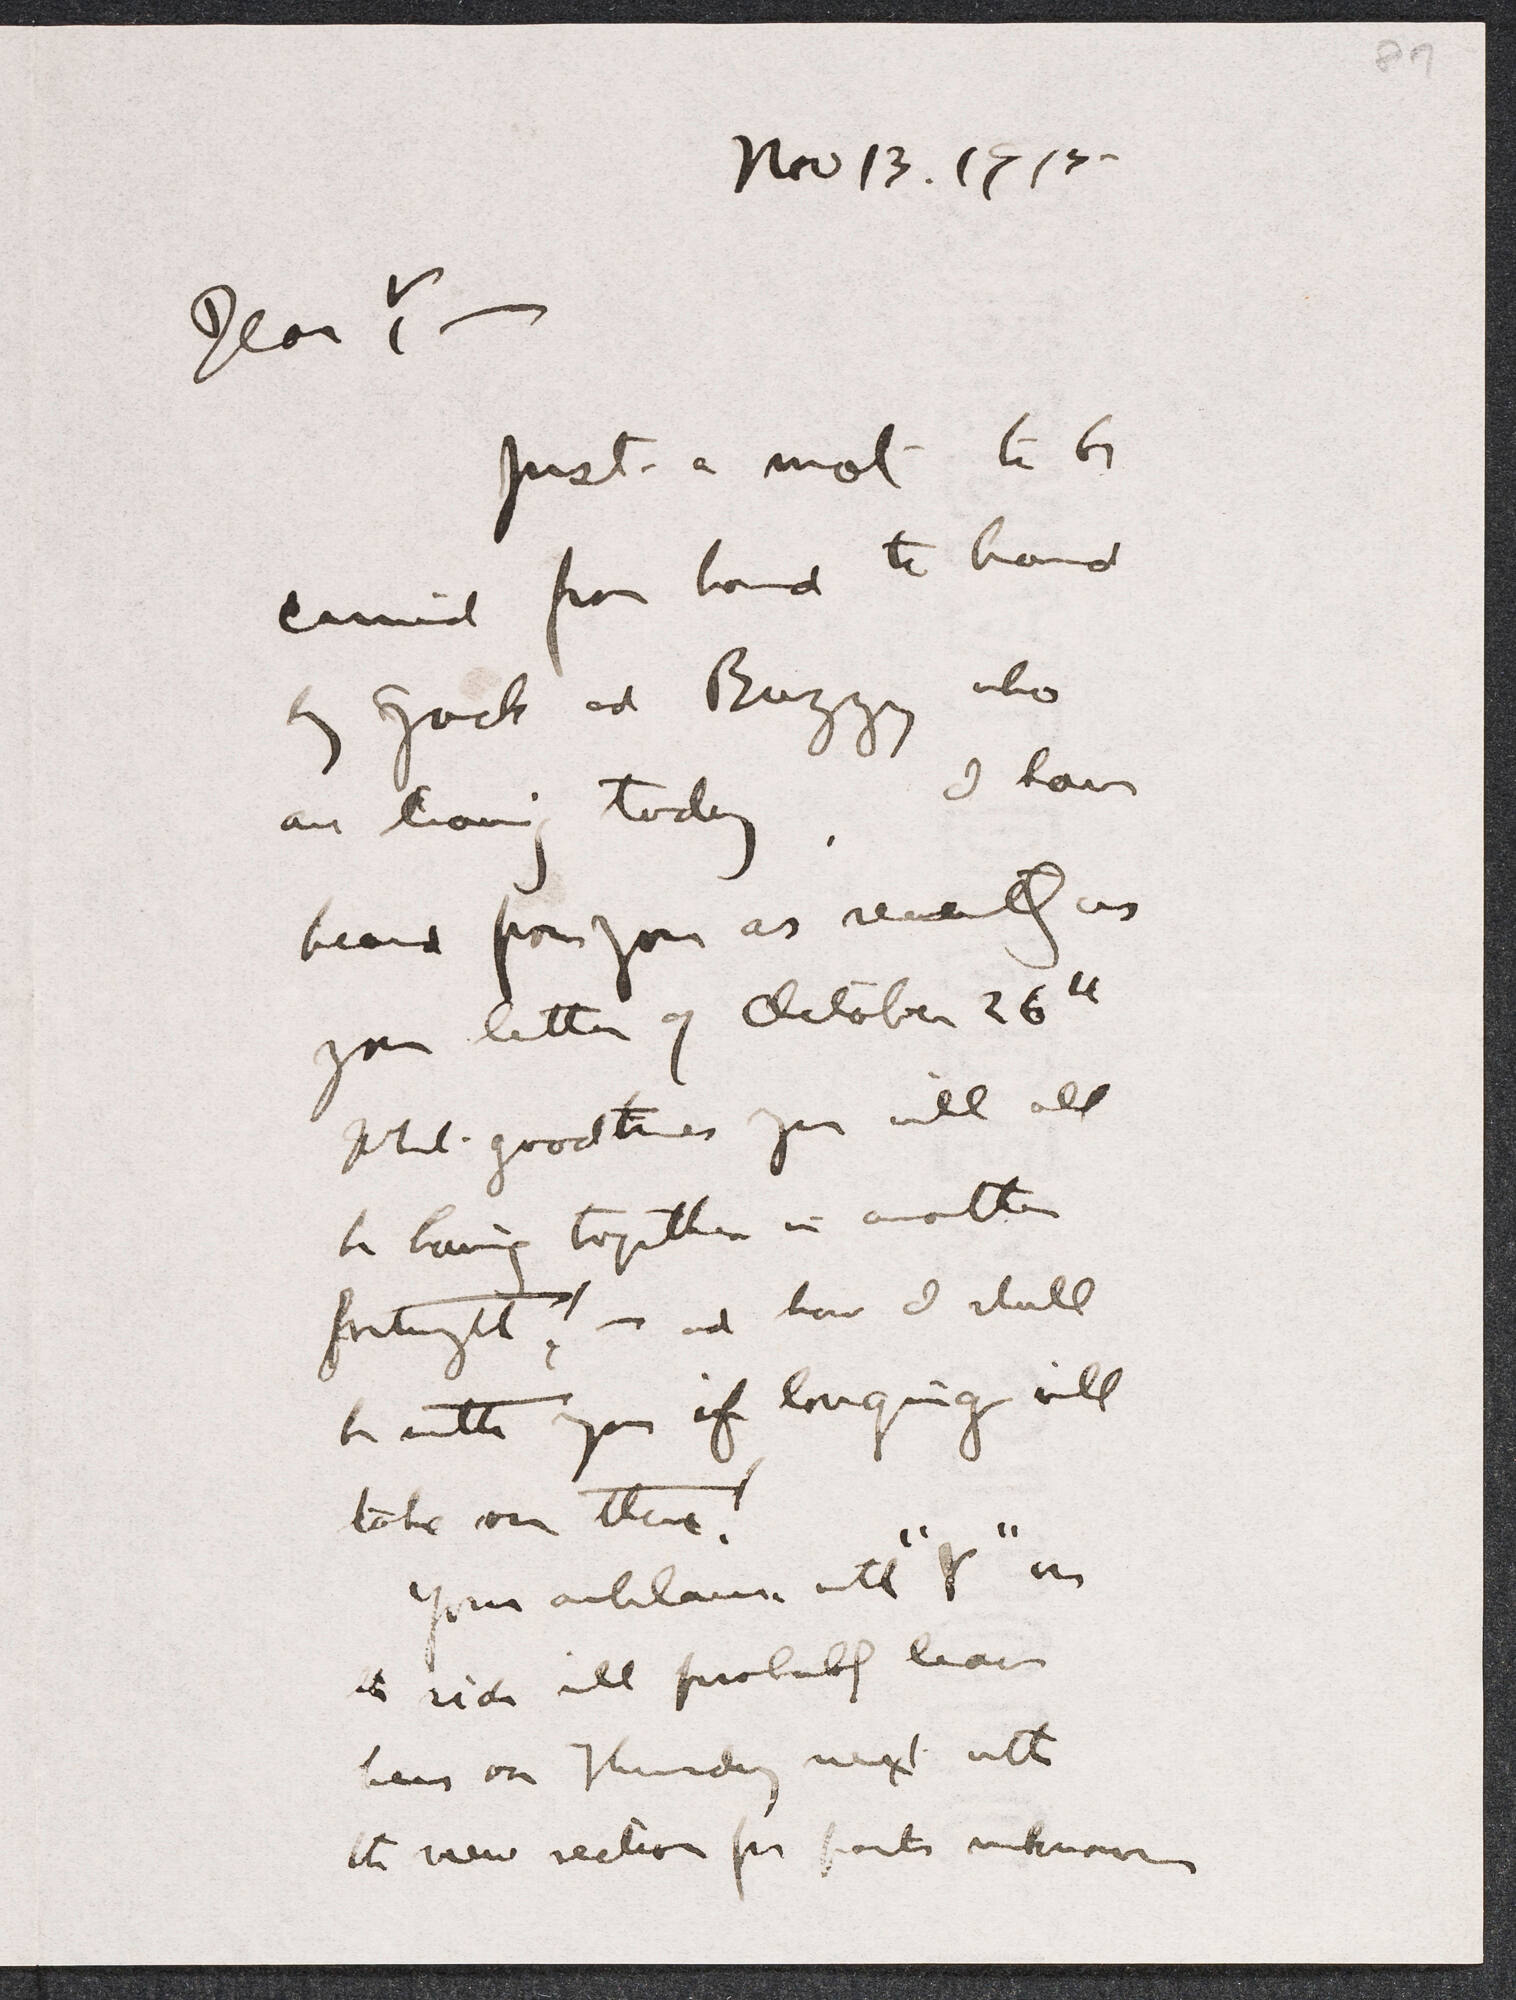 87
Nov 13. 1915
Dear Y —
Just a mot to be
carried from hand to hand
by Jack and Buzzy who
are leaving today. I have
heard from you as recently as
your letter of October 26th
What good times you will all
be having together in another
fortnight! — and how I shall
be with you if longing will
take one there!
Your ambulance with "Y" on
its side will probably leave
here on Thursday next with
the new section for parts unknown